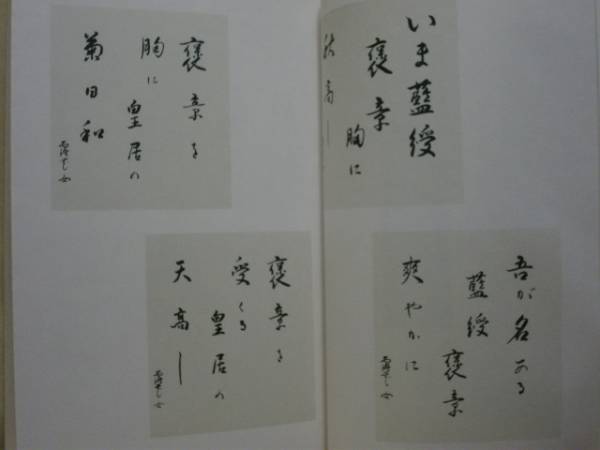 いま藍綬
褒章
胸に
秋高し
吾が名ある
藍綬
褒章
爽やかに
褒章を
胸に
皇居の
菊日和
褒章を
受くる
皇居の
天高し